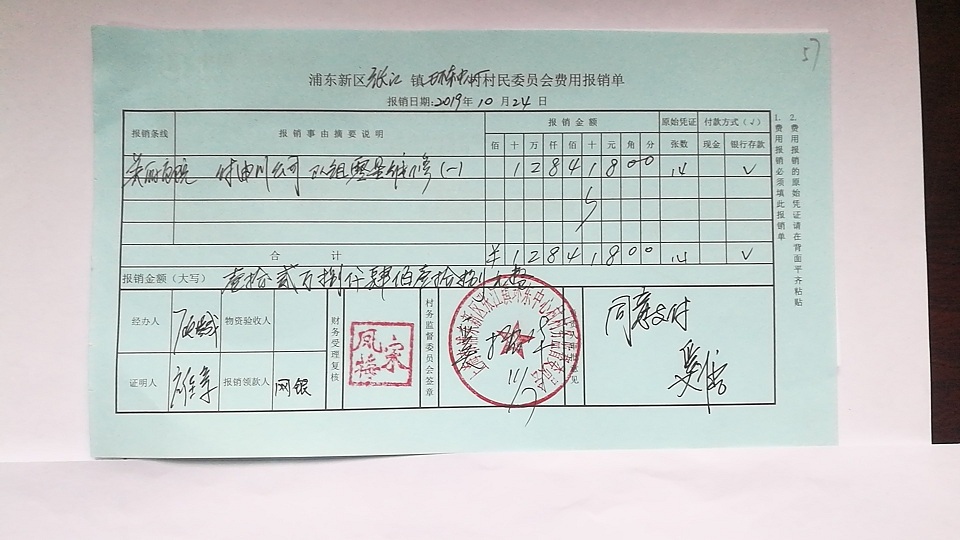 57
浦东新区张江镇环东中心村村民委员会费用报销单
报销日期:2019年10月24日
报销条线 报销事由摘要说明 报销金额 原始凭证 付款方式(√)
佰 十 万 仟 佰 十 元 角 分 张数 现金 银行存款
队组零星维修(一) 1 2 8 4 1 8 0 0 14 √
合计 ¥ 1 2 8 4 1 8 0 0 14 √
报销金额(大写) 壹拾贰万捌仟肆佰壹拾捌元整
经办人 物资验收人 财务受理复核 村务监督委员会签章 同意支付
证明人 报销领款人 网银
11/7
1.费用报销必须填此报销单
2.费用报销的原始凭证请在背面平齐粘贴